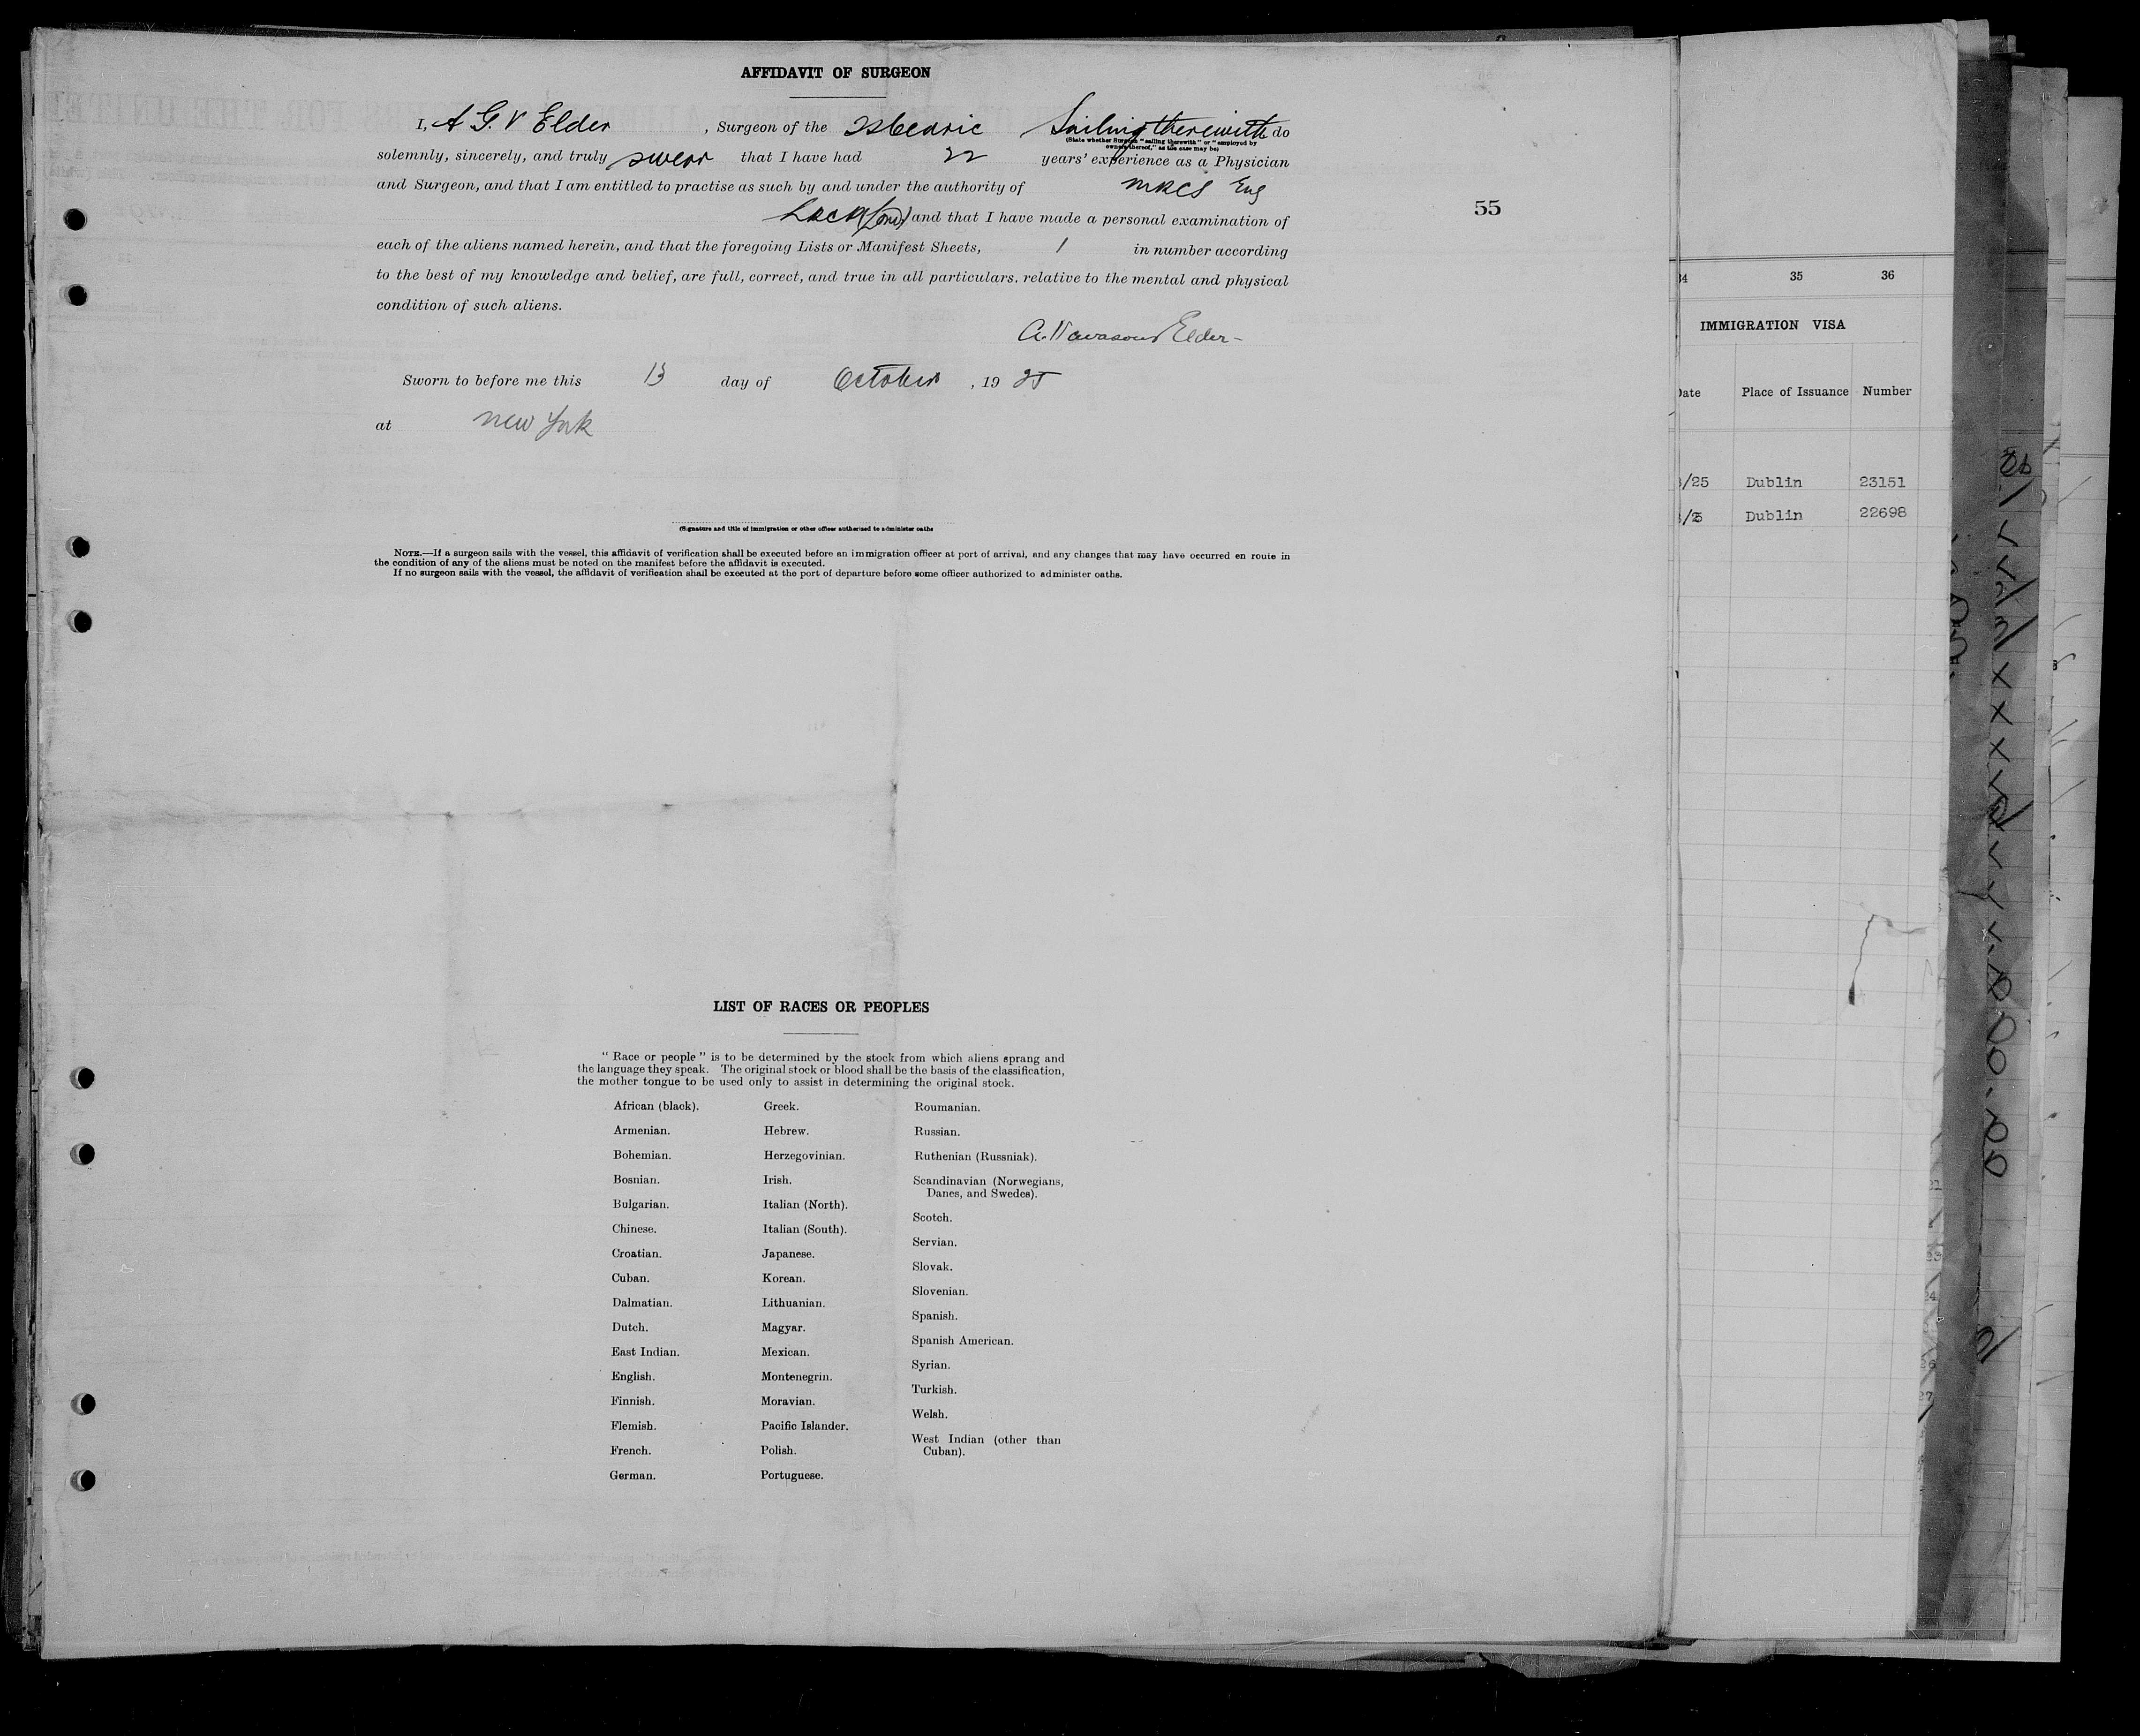 AFFIDAVIT OF SURGEON
I, A G. V Elder , Surgeon of the Sailing therewith do
(State whether Surgeon "sailing therewith" or "employed by
owners thereof," as the case may be)
solemnly, sincerely, and truly swear that I have had 22 years' experience as a Physician
and Surgeon, and that I am entitled to practise as such by and under the authority of MRCS Eng
(Lond) and that I have made a personal examination of
each of the aliens named herein, and that the foregoing Lists or Manifest Sheets, 1 in number according
to the best of my knowledge and belief, are full, correct, and true in all particulars, relative to the mental and physical
condition of such aliens.
Elder
Sworn to before me this 13 day of October , 19 25
at New York
(Signature and title of immigration or other officer authorised to administer oaths
NOTE.—If a surgeon sails with the vessel, this affidavit of verification shall be executed before an immigration officer at port of arrival, and any changes that may have occurred en route in
the condition of any of the aliens must be noted on the manifest before the affidavit is executed.
If no surgeon sails with the vessel, the affidavit of verification shall be executed at the port of departure before some officer authorized to administer oaths.
55
LIST OF RACES OR PEOPLES
" Race or people " is to be determined by the stock from which aliens sprang and
the language they speak. The original stock or blood shall be the basis of the classification,
the mother tongue to be used only to assist in determining the original stock.
African (black).
Armenian.
Bohemian.
Bosnian.
Bulgarian.
Chinese.
Croatian.
Cuban.
Dalmatian.
Dutch.
East Indian.
English.
Finnish.
Flemish.
French.
German.
Greek.
Hebrew.
Herzegovinian.
Irish.
Italian (North).
Italian (South).
Japanese.
Korean.
Lithuanian.
Magyar.
Mexican.
Montenegrin.
Moravian.
Pacific Islander.
Polish.
Portuguese.
Roumanian.
Russian.
Ruthenian (Russniak).
Scandinavian (Norwegians,
Danes, and Swedes).
Scotch.
Servian.
Slovak.
Slovenian.
Spanish.
Spanish American.
Syrian.
Turkish.
Welsh.
West Indian (other than
Cuban).
35 36
IMMIGRATION VISA
Date Place of Issuance Number
/25 Dublin 23151
Dublin 22698